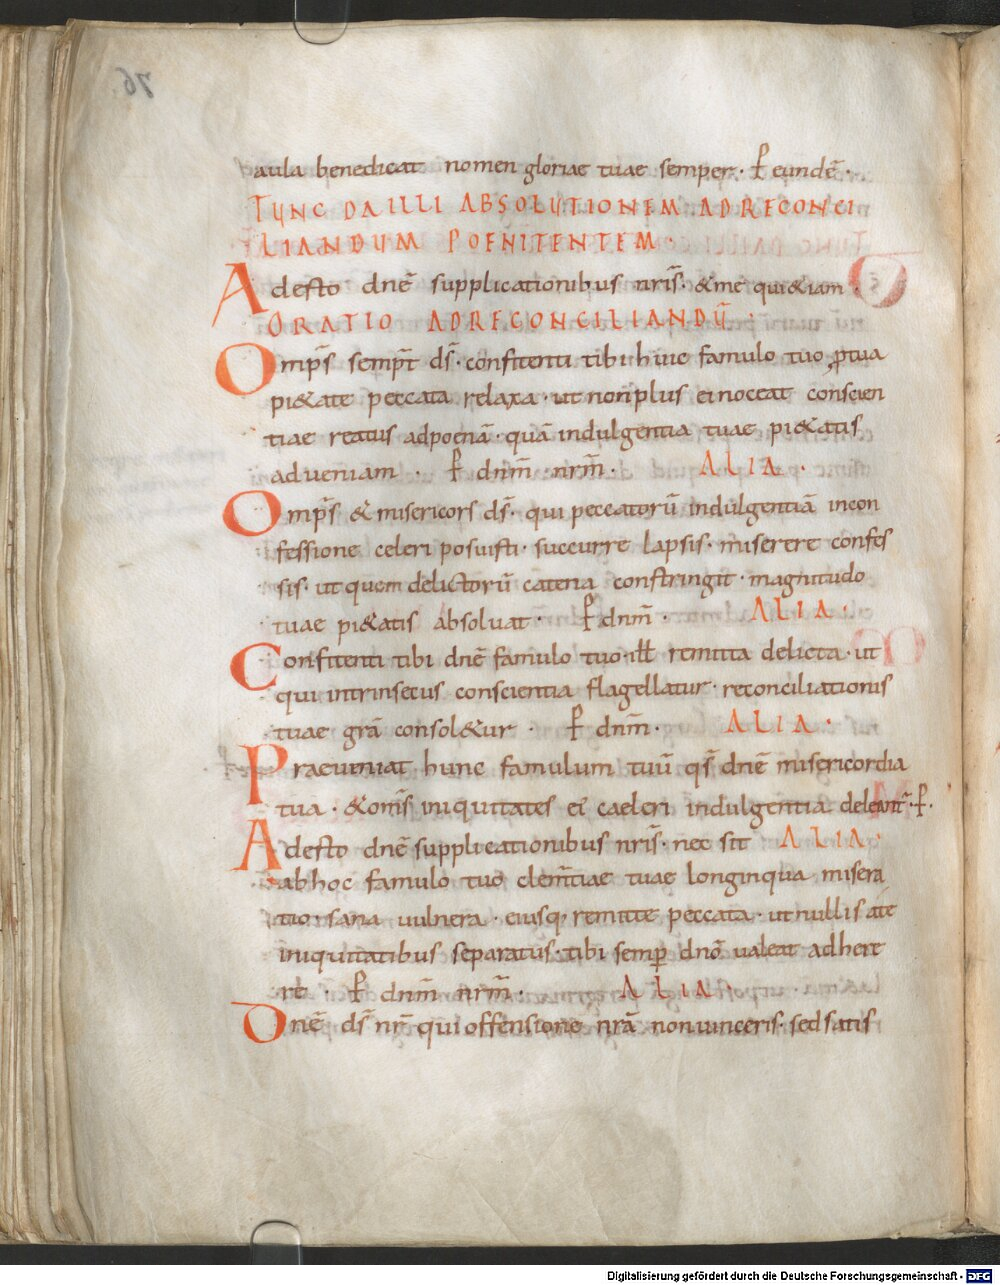 aula benedicat nomen gloriae tuae semper · ꝑ eundē ·
TUNC DA ILLI ABSOLUTIONEM AD RECONCI
LIANDUM POENITENTEM ·
Adesto dnē supplicationibus nr̄is · &me qui&iam ·
ORATIO AD RECONCILIANDŪ ·
Omp̄s semp̄t ds̄ · confitenti tibi huic famulo tuo ꝓ tua
pi&ate peccata relaxa · ut non plus ei noceat conscien
tiae reatus ad poenā · quā indulgentia tuae pi&atis
ad veniam · ꝑ dnm̄ · nrm̄ · ALIA ·
Omp̄s & misericors ds̄ · qui peccatorū indulgentiā in con
fessione celeri posuisti · succurre lapsis · miserere confes
sis · ut quem delictorū catena constringit · magnitudo
tuae pi&atis absoluat · ꝑ dnm̄ · ALIA ·
Confitenti tibi dnē famulo tuo · ill̄ remitta delicta · ut
qui intrinsecus conscientia flagellatur · reconciliationis
tuae gr̄a consol&ur · ꝑ dnm̄ · ALIA ·
Praeueniat hunc famulum tuū qs̄ dnē misericordia
tua · &om̄s iniquitates ei caeleri indulgentia deleant̄ · ꝑ ·
Adesto dnē supplicationibus nr̄is · nec sit ALIA ·
ab hoc famulo tuo clem̄tiae tuae longinqua misera
tio · sana uulnera · eiusq; remitte peccata · ut nullis ate
iniquitatibus separatus · tibi semp̄ dnō ualeat adhere
re · ꝑ dnm̄ nrm̄ · ALIA ·
Dnē ds̄ nr̄ qui offensione nr̄ā non uinceris · sed satis
76
Digitalisierung gefördert durch die Deutsche Forschungsgemeinschaft - DFG